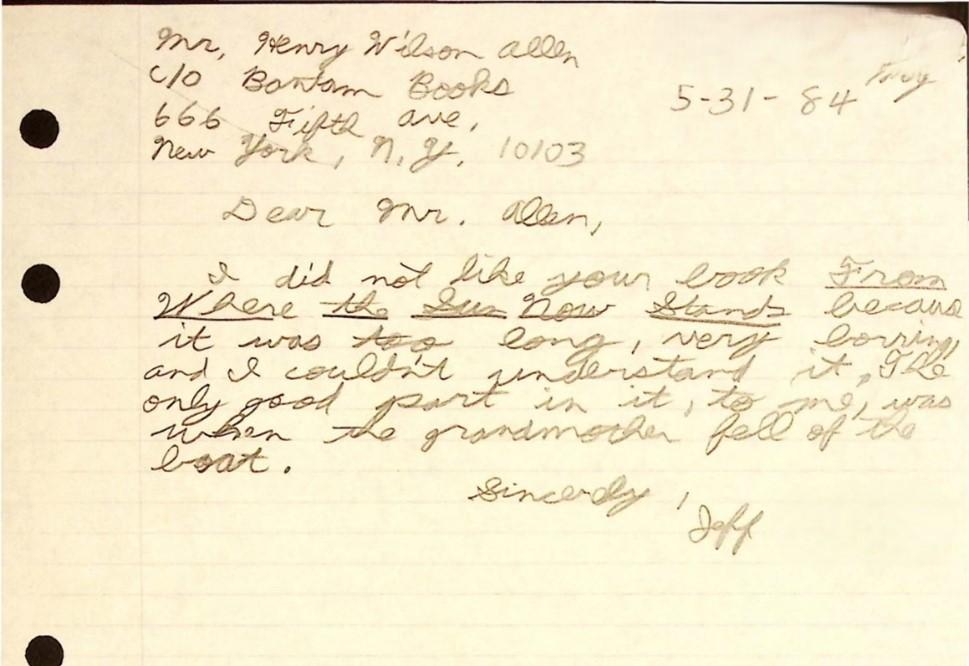 Mr, Henry Wilson Allen
c/o Bantam Books
5-31-84
666 Fifth ave,
New York, N.Y, 10103
Dear Mr. Allen,
I did not like your book From
Where the Sun Now Stands becaus
it was too long, very borring,
and I couldn't understand it, The
only good part in it, to me, was
when the grandmother fell of the
boat.
Sincerly,
Jeff